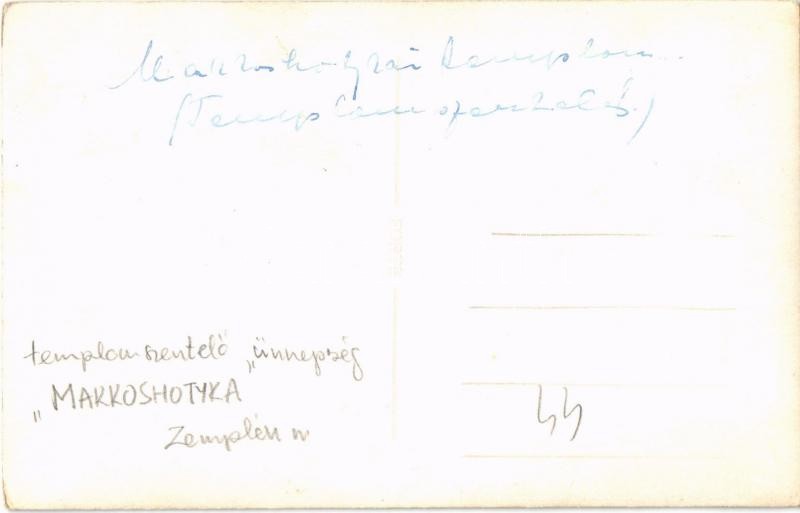 Makkoshotykai templom.
(Templom szentelés.)
templomszentelő „ünnepség
„MAKKOSHOTYKA
Zemplén m